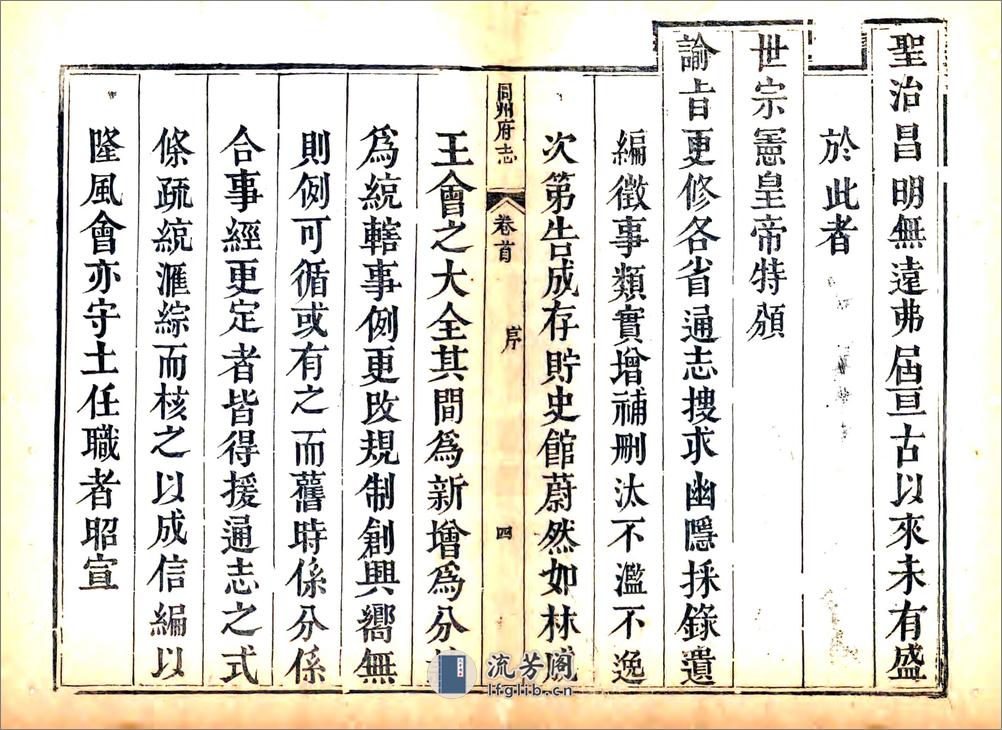 聖治昌明無遠弗屆亘古以來未有盛
於此者
世宗憲皇帝特頒
諭旨更修各省通志搜求幽隱採錄遺
編徵事類實增補刪汰不濫不逸
次第告成存貯史館蔚然如林
同州府志
卷首
序
四
王會之大全其間為新增為分
為統轄事例更改規制創興嚮無
則例可循或有之而舊時係分係
合事經更定者皆得援通志之式
條疏統滙綜而核之以成信編以
隆風會亦守土任職者昭宣
流芳阁
lfglib.cn